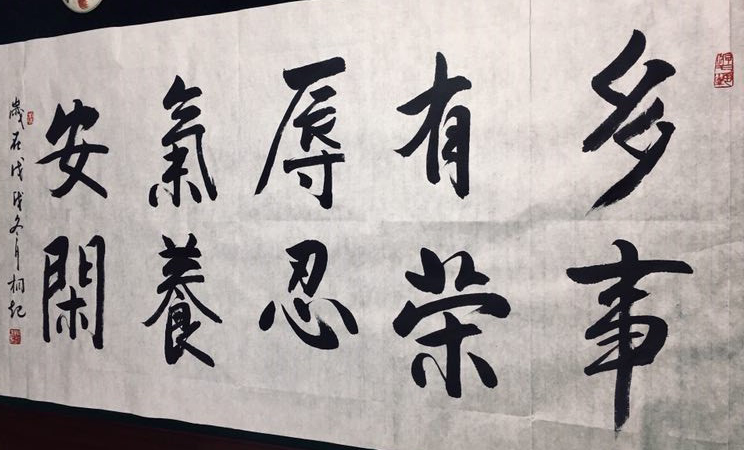 多事
有荣
辱忍
氣養
安閑
歲在戊戌冬月桐起